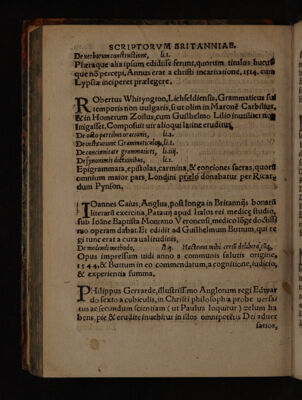 SCRIPTORVM BRITANNIAE.
De verborum constructione, li.1.
Plæraque alia ipsum edidisse ferunt, quorum titulos hucus
que nō percepi, Annus erat a christi incarnatione, 1514. cum
Lypsiæ inciperet prælegere.
RObertus Whityngton, Lichfeldiensis, Grammaticus sui
temporis non uulgaris, sicut olim in Maronē Carbilius,
& in Homerum Zoilus, cum Guilhelmo Lilio inutiliter
Composuit uir alioqui latine eruditus,
De octo partibus orationis, li.1.
De concinnitate grammatices,
De synonimis dictionibus, li.1.
Epigrammata, epistolas, carmina, & conciones sacras, quorū
omnium maior pars, Londini prælo donabatur per Ricar
dum Pynson.
IOannes Caius, Anglus, post longa in Britannijs bonarū
literarū exercitia, Patauij apud Italos rei medicę studio,
sub Ioāne Baptista Montano Veronensi, medico lōge doctissi
mo operam dabat. Et edidit ad Guilhelmum Buttum, qui re
gi tunc erat a cura ualitudinis,
De medendi methodo,
Opus impressum uidi anno a communis salutis origine,
1544, & Buttum in eo commendatum, a cognitione, iudicio,
& experientia summa.
PHilippus Gerrarde, illustrissimo Anglorum regi Edwar
do sexto a cubiculis, in Christi philosophia probe uersa
tus ac secundum scientiam (ut Paulus loquitur) zelum ha
bens, pie & erudite inuehitur in illos omnipotētis Dei aduer
sarios,